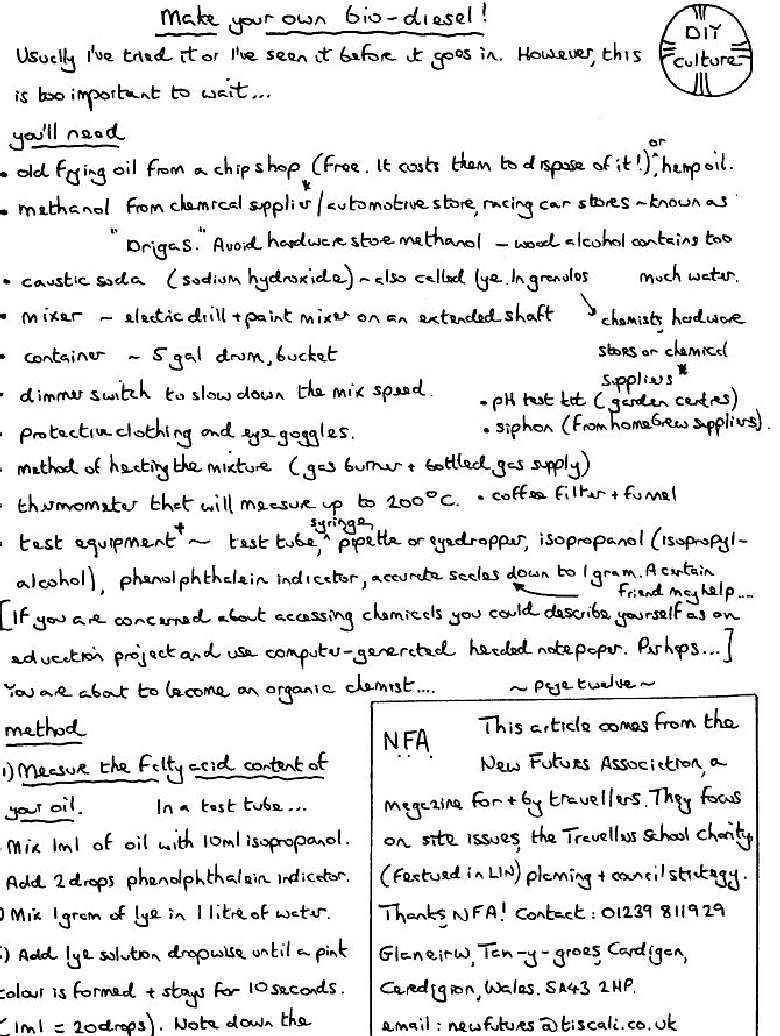 Make your own bio-diesel!
DIY
culture
Usually I've tried it or I've seen it before it goes in. However, this
is too important to wait...
you'll need
• old frying oil from a chip shop (free. It costs them to dispose of it!) or hemp oil.
• methanol from chemical supplier*/automotive store, racing car stores ~ known as
"Drigas." Avoid hardware store methanol – wood alcohol contains too
much water.
• caustic soda (sodium hydroxide) ~ also called lye. In granules
chemists, hardware
stores or chemical
suppliers*
• mixer ~ electric drill + paint mixer on an extended shaft
• container ~ 5 gal drum, bucket
• dimmer switch to slow down the mix speed.
• pH test kit (garden centres)
• protective clothing and eye goggles.
• siphon (from homebrew suppliers).
• method of heating the mixture (gas burner + bottled gas supply)
• thermometer that will measure up to 200°C. • coffee filter + funnel
• test equipment+ ~ test tube, syringe, pipette or eyedropper, isopropanol (isopropyl-
alcohol), phenolphthalein indicator, accurate scales down to 1 gram. A certain
friend may help...
[If you are concerned about accessing chemicals you could describe yourself as an
education project and use computer-generated headed notepaper. Perhaps...]
You are about to become an organic chemist....
~ page twelve ~
method
1) Measure the fatty acid content of
your oil. In a test tube...
Mix 1ml of oil with 10ml isopropanol.
Add 2 drops phenolphthalein indicator.
) Mix 1gram of lye in 1 litre of water.
) Add lye solution dropwise until a pink
colour is formed + stays for 10 seconds.
(1ml = 20drops). Note down the
NFA
This article comes from the
New Futures Association, a
magazine for + by travellers. They focus
on site issues, the Travellers School charity
(featured in LIN) planning + council strategy.
Thanks NFA! Contact: 01239 811929
Glaneirw, Tan-y-groes, Cardigan,
Ceredigion, Wales. SA43 2HP.
email: newfutures@tiscali.co.uk